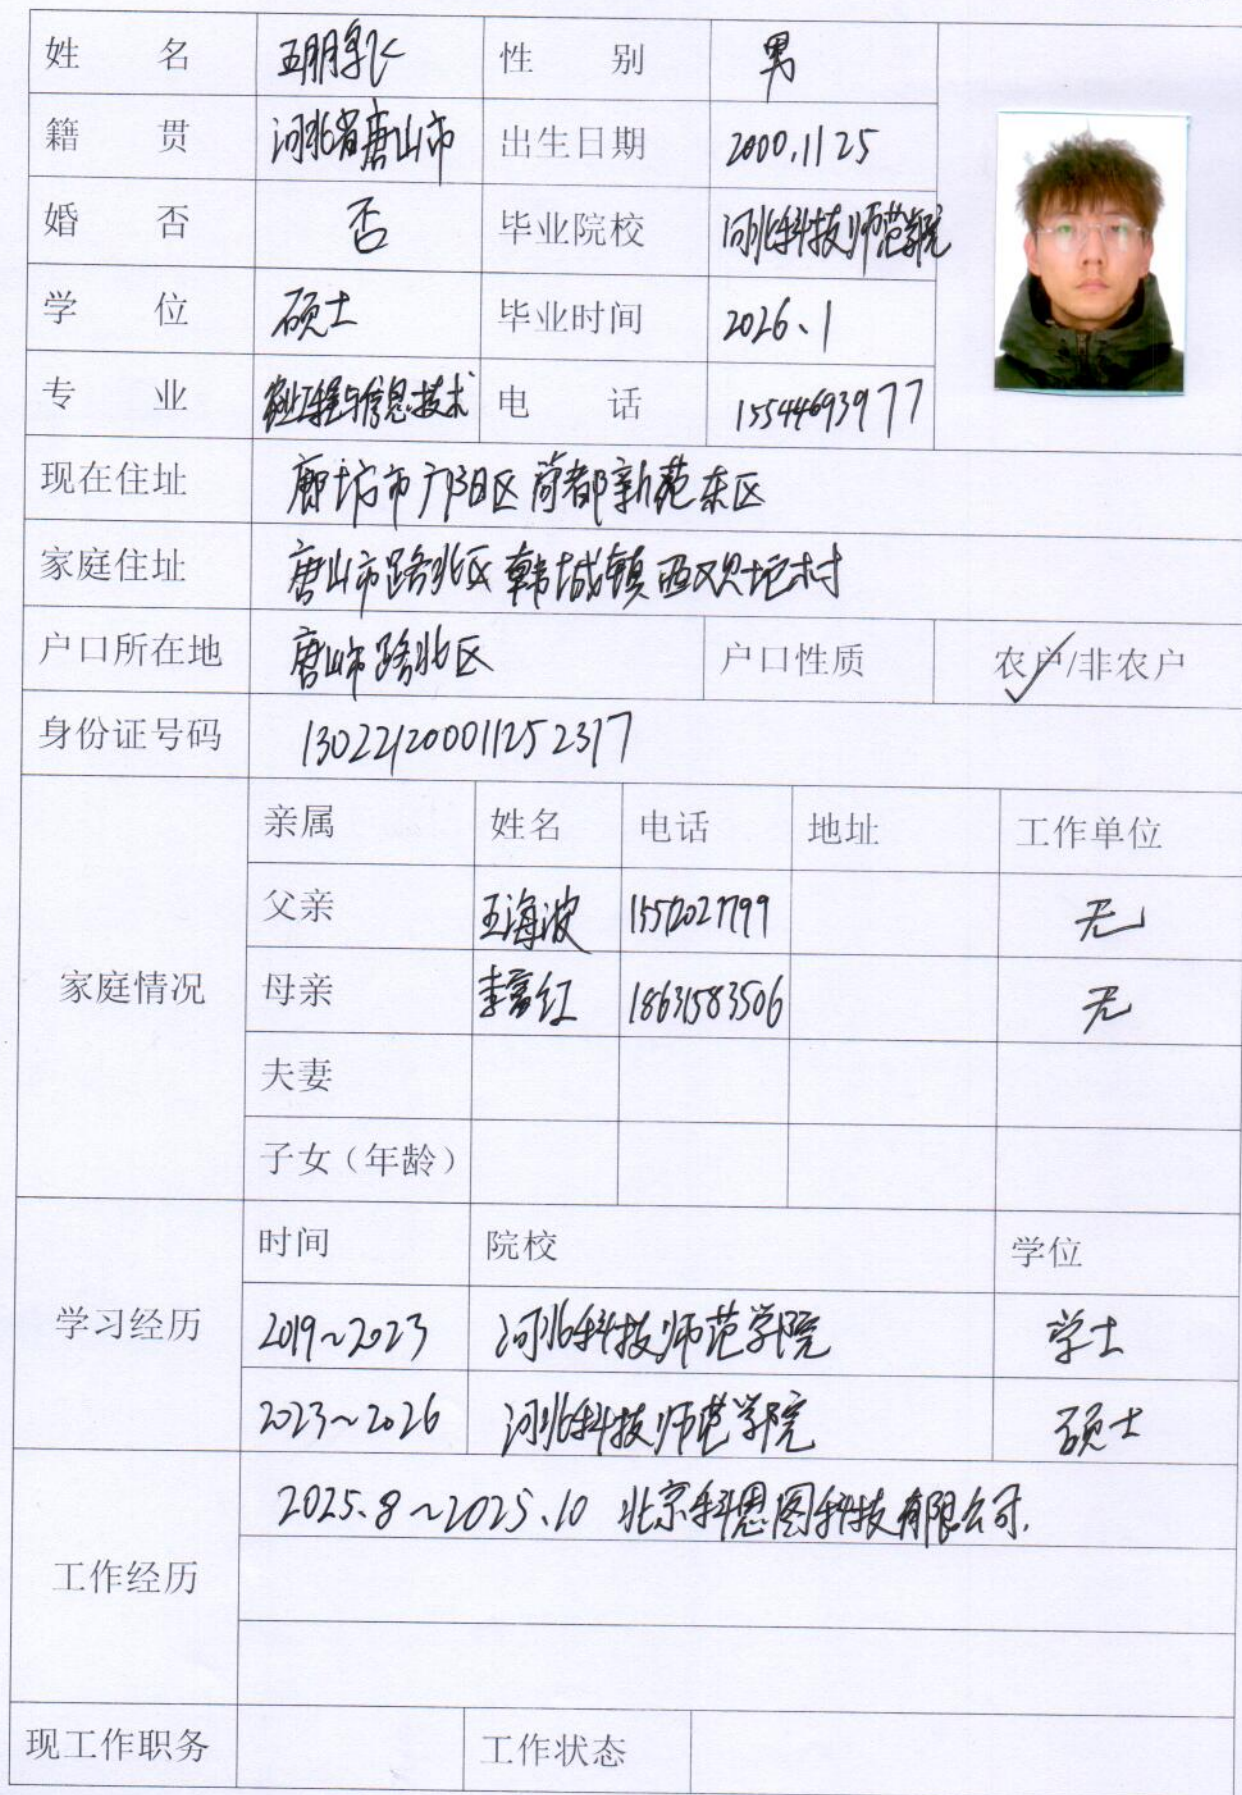 姓 名 王鹏飞 性 别 男
籍 贯 河北省唐山市 出生日期 2000.11 25
婚 否 否 毕业院校 河北科技师范学院
学 位 硕士 毕业时间 2026、1
专 业 农业工程与信息技术 电 话 15544693977
现在住址 廊坊市广阳区 尚都新苑东区
家庭住址 唐山市路北区 韩城镇 西欢坨村
户口所在地 唐山市路北区 户口性质 农户/非农户
身份证号码 130221200011252317
亲属 姓名 电话 地址 工作单位
父亲 王海波 无
家庭情况 母亲 李富红 18631583506 无
夫妻
子女（年龄）
时间 院校 学位
学习经历 2019~2023 河北科技师范学院 学士
2023~2026 河北科技师范学院 硕士
2025、8~2025、10 北京科恩图科技有限公司.
工作经历
现工作职务 工作状态